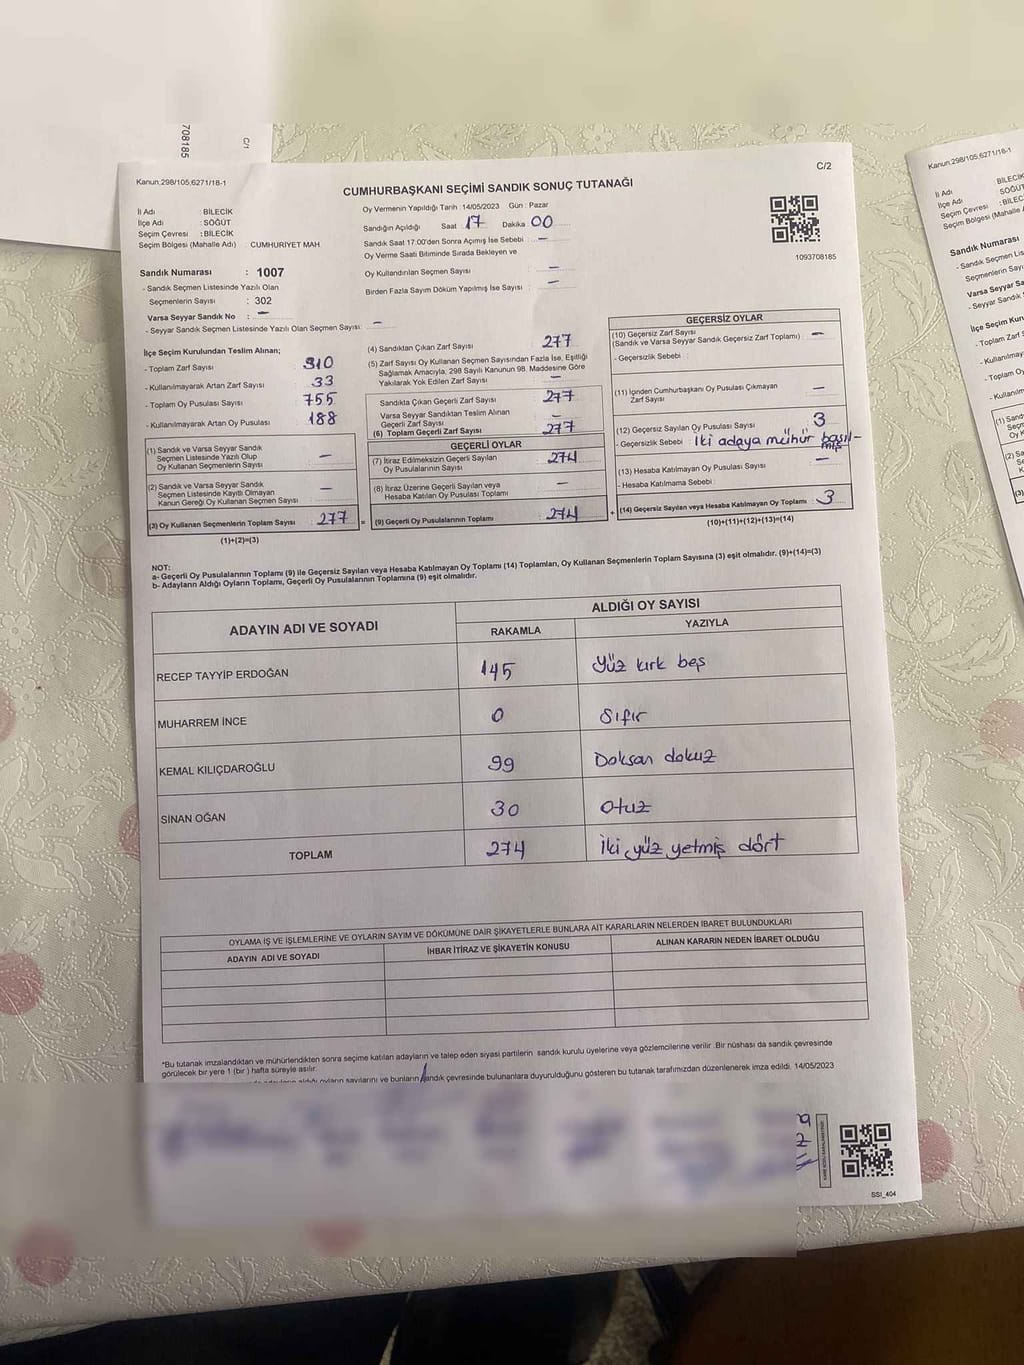 708185
C/1
Kanun;298/105,6271/18-1
C/2
CUMHURBAŞKANI SEÇİMİ SANDIK SONUÇ TUTANAĞI
İli Adı : BİLECİK
İlçe Adı : SÖĞÜT
Seçim Çevresi : BİLECİK
Seçim Bölgesi (Mahalle Adı) : CUMHURIYET MAH
Sandık Numarası : 1007
- Sandık Seçmen Listesinde Yazılı Olan
Seçmenlerin Sayısı : 302
Varsa Seyyar Sandık No : -
- Seyyar Sandık Seçmen Listesinde Yazılı Olan Seçmen Sayısı: -
Oy Vermenin Yapıldığı Tarih :14/05/2023 Gün : Pazar
Sandığın Açıldığı Saat 17 Dakika : 00
Sandık Saat 17:00'den Sonra Açımış İse Sebebi : -
Oy Verme Saati Bitiminde Sırada Bekleyen ve
Oy Kullandırılan Seçmen Sayısı : -
Birden Fazla Sayım Döküm Yapılmış İse Sayısı : -
1093708185
İlçe Seçim Kurulundan Teslim Alınan;
- Toplam Zarf Sayısı : 310
- Kullanılmayarak Artan Zarf Sayısı : 33
- Toplam Oy Pusulası Sayısı : 755
- Kullanılmayarak Artan Oy Pusulası : 188
(1) Sandık ve Varsa Seyyar Sandık
Seçmen Listesinde Yazılı Olup
Oy Kullanan Seçmenlerin Sayısı : -
(2) Sandık ve Varsa Seyyar Sandık
Seçmen Listesinde Kayıtlı Olmayan
Kanun Gereği Oy Kullanan Seçmen Sayısı : -
(3) Oy Kullanan Seçmenlerin Toplam Sayısı : 277
(1)+(2)=(3)
=
(4) Sandıktan Çıkan Zarf Sayısı : 277
(5) Zarf Sayısı Oy Kullanan Seçmen Sayısından Fazla İse, Eşitliği
Sağlamak Amacıyla, 298 Sayılı Kanunun 98. Maddesine Göre
Yakılarak Yok Edilen Zarf Sayısı : -
Sandıkta Çıkan Geçerli Zarf Sayısı : 277
Varsa Seyyar Sandıktan Teslim Alınan
Geçerli Zarf Sayısı : -
(6) Toplam Geçerli Zarf Sayısı : 277
GEÇERLİ OYLAR
(7) İtiraz Edilmeksizin Geçerli Sayılan
Oy Pusulalarının Sayısı : 274
(8) İtiraz Üzerine Geçerli Sayılan veya
Hesaba Katılan Oy Pusulası Toplamı : -
(9) Geçerli Oy Pusulalarının Toplamı : 274
+
GEÇERSİZ OYLAR
(10) Geçersiz Zarf Sayısı
(Sandık ve Varsa Seyyar Sandık Geçersiz Zarf Toplamı) : -
- Geçersizlik Sebebi :
(11) İçinden Cumhurbaşkanı Oy Pusulası Çıkmayan
Zarf Sayısı : -
(12) Geçersiz Sayılan Oy Pusulası Sayısı : 3
- Geçersizlik Sebebi : İki adaya mühür basıl-
mış
(13) Hesaba Katılmayan Oy Pusulası Sayısı : -
- Hesaba Katılmama Sebebi :
(14) Geçersiz Sayılan veya Hesaba Katılmayan Oy Toplamı : 3
(10)+(11)+(12)+(13)=(14)
NOT:
a- Geçerli Oy Pusulalarının Toplamı (9) ile Geçersiz Sayılan veya Hesaba Katılmayan Oy Toplamı (14) Toplamları, Oy Kullanan Seçmenlerin Toplam Sayısına (3) eşit olmalıdır. (9)+(14)=(3)
b- Adayların Aldığı Oyların Toplamı, Geçerli Oy Pusulalarının Toplamına (9) eşit olmalıdır.
ADAYIN ADI VE SOYADI
ALDIĞI OY SAYISI
RAKAMLA YAZIYLA
RECEP TAYYİP ERDOĞAN 145 yüz kırk beş
MUHARREM İNCE 0 Sıfır
KEMAL KILIÇDAROĞLU 99 Doksan dokuz
SİNAN OĞAN 30 Otuz
TOPLAM 274 İki yüz yetmiş dört
OYLAMA İŞ VE İŞLEMLERİNE VE OYLARIN SAYIM VE DÖKÜMÜNE DAİR ŞİKAYETLERLE BUNLARA AİT KARARLARIN NELERDEN İBARET BULUNDUKLARI
ADAYIN ADI VE SOYADI İHBAR İTİRAZ VE ŞİKAYETİN KONUSU ALINAN KARARIN NEDEN İBARET OLDUĞU
*Bu tutanak imzalandıktan ve mühürlendikten sonra seçime katılan adayların ve talep eden siyasi partilerin sandık kurulu üyelerine veya gözlemcilerine verilir .Bir nüshası da sandık çevresinde
görülecek bir yere 1 (bir ) hafta süreyle asılır.
aldığı oyların sayılarını ve bunların sandık çevresinde bulunanlara duyurulduğunu gösteren bu tutanak tarafımızdan düzenlenerek imza edildi. 14/05/2023
SSI_404
Kanun;298/105,6271/18-1
İli Adı : BİLECİK
İlçe Adı : SÖĞÜT
Seçim Çevresi : BİLEC
Seçim Bölgesi (Mahalle
Sandık Numarası
- Sandık Seçmen Lis
Seçmenlerin Sayıs
Varsa Seyyar Sa
- Seyyar Sandık
İlçe Seçim Kur
- Toplam Zarf S
- Kullanılmaya
- Toplam O
- Kullanılm